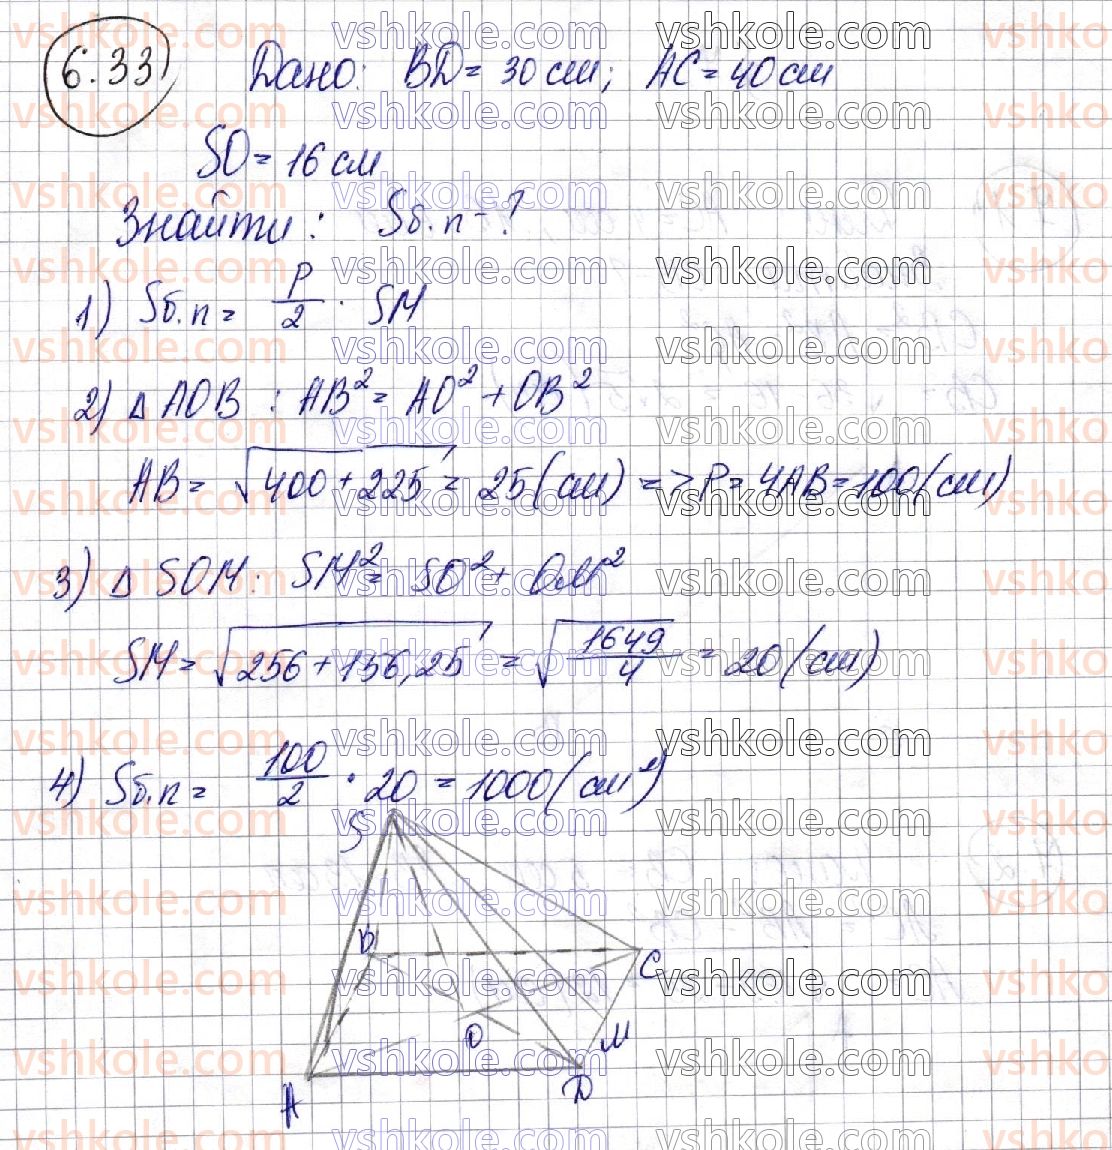 6.33
Дано: BD = 30 см; AC = 40 см
SO = 16 см
Знайти: Sб.п - ?
1) Sб.п = P/2 · SM
2) Δ AOB : AB² = AO² + OB²
AB = √400 + 225 = 25 (см) => P = 4AB = 100 (см)
3) Δ SOM: SM² = SO² + OM²
SM = √256 + 156,25 = √1649/4 = 20 (см)
4) Sб.п = 100/2 · 20 = 1000 (см²)
S
B
C
O
M
A
D
vshkole.com